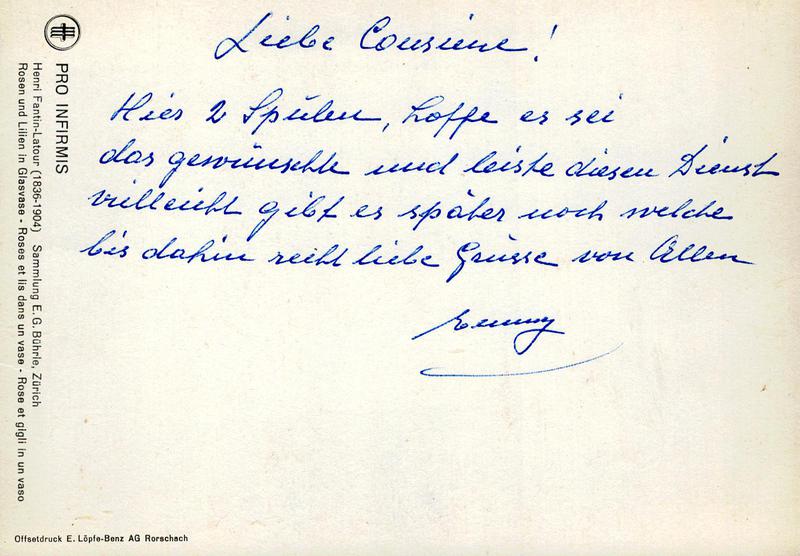 Liebe Cousine!
Hier 2 Spülen, hoffe es sei
das gewünschte und leiste diesen Dienst
villeicht gibt es später noch welche
bis dahin recht liebe Grüsse von Allen
Emmy
PRO INFIRMIS
Henri Fantin-Latour (1836-1904) Sammlung E. G. Bührle, Zürich
Rosen und Lilien in Glasvase · Roses et lis dans un vase · Rose et gigli in un vaso
Offsetdruck E. Löpfe-Benz AG Rorschach